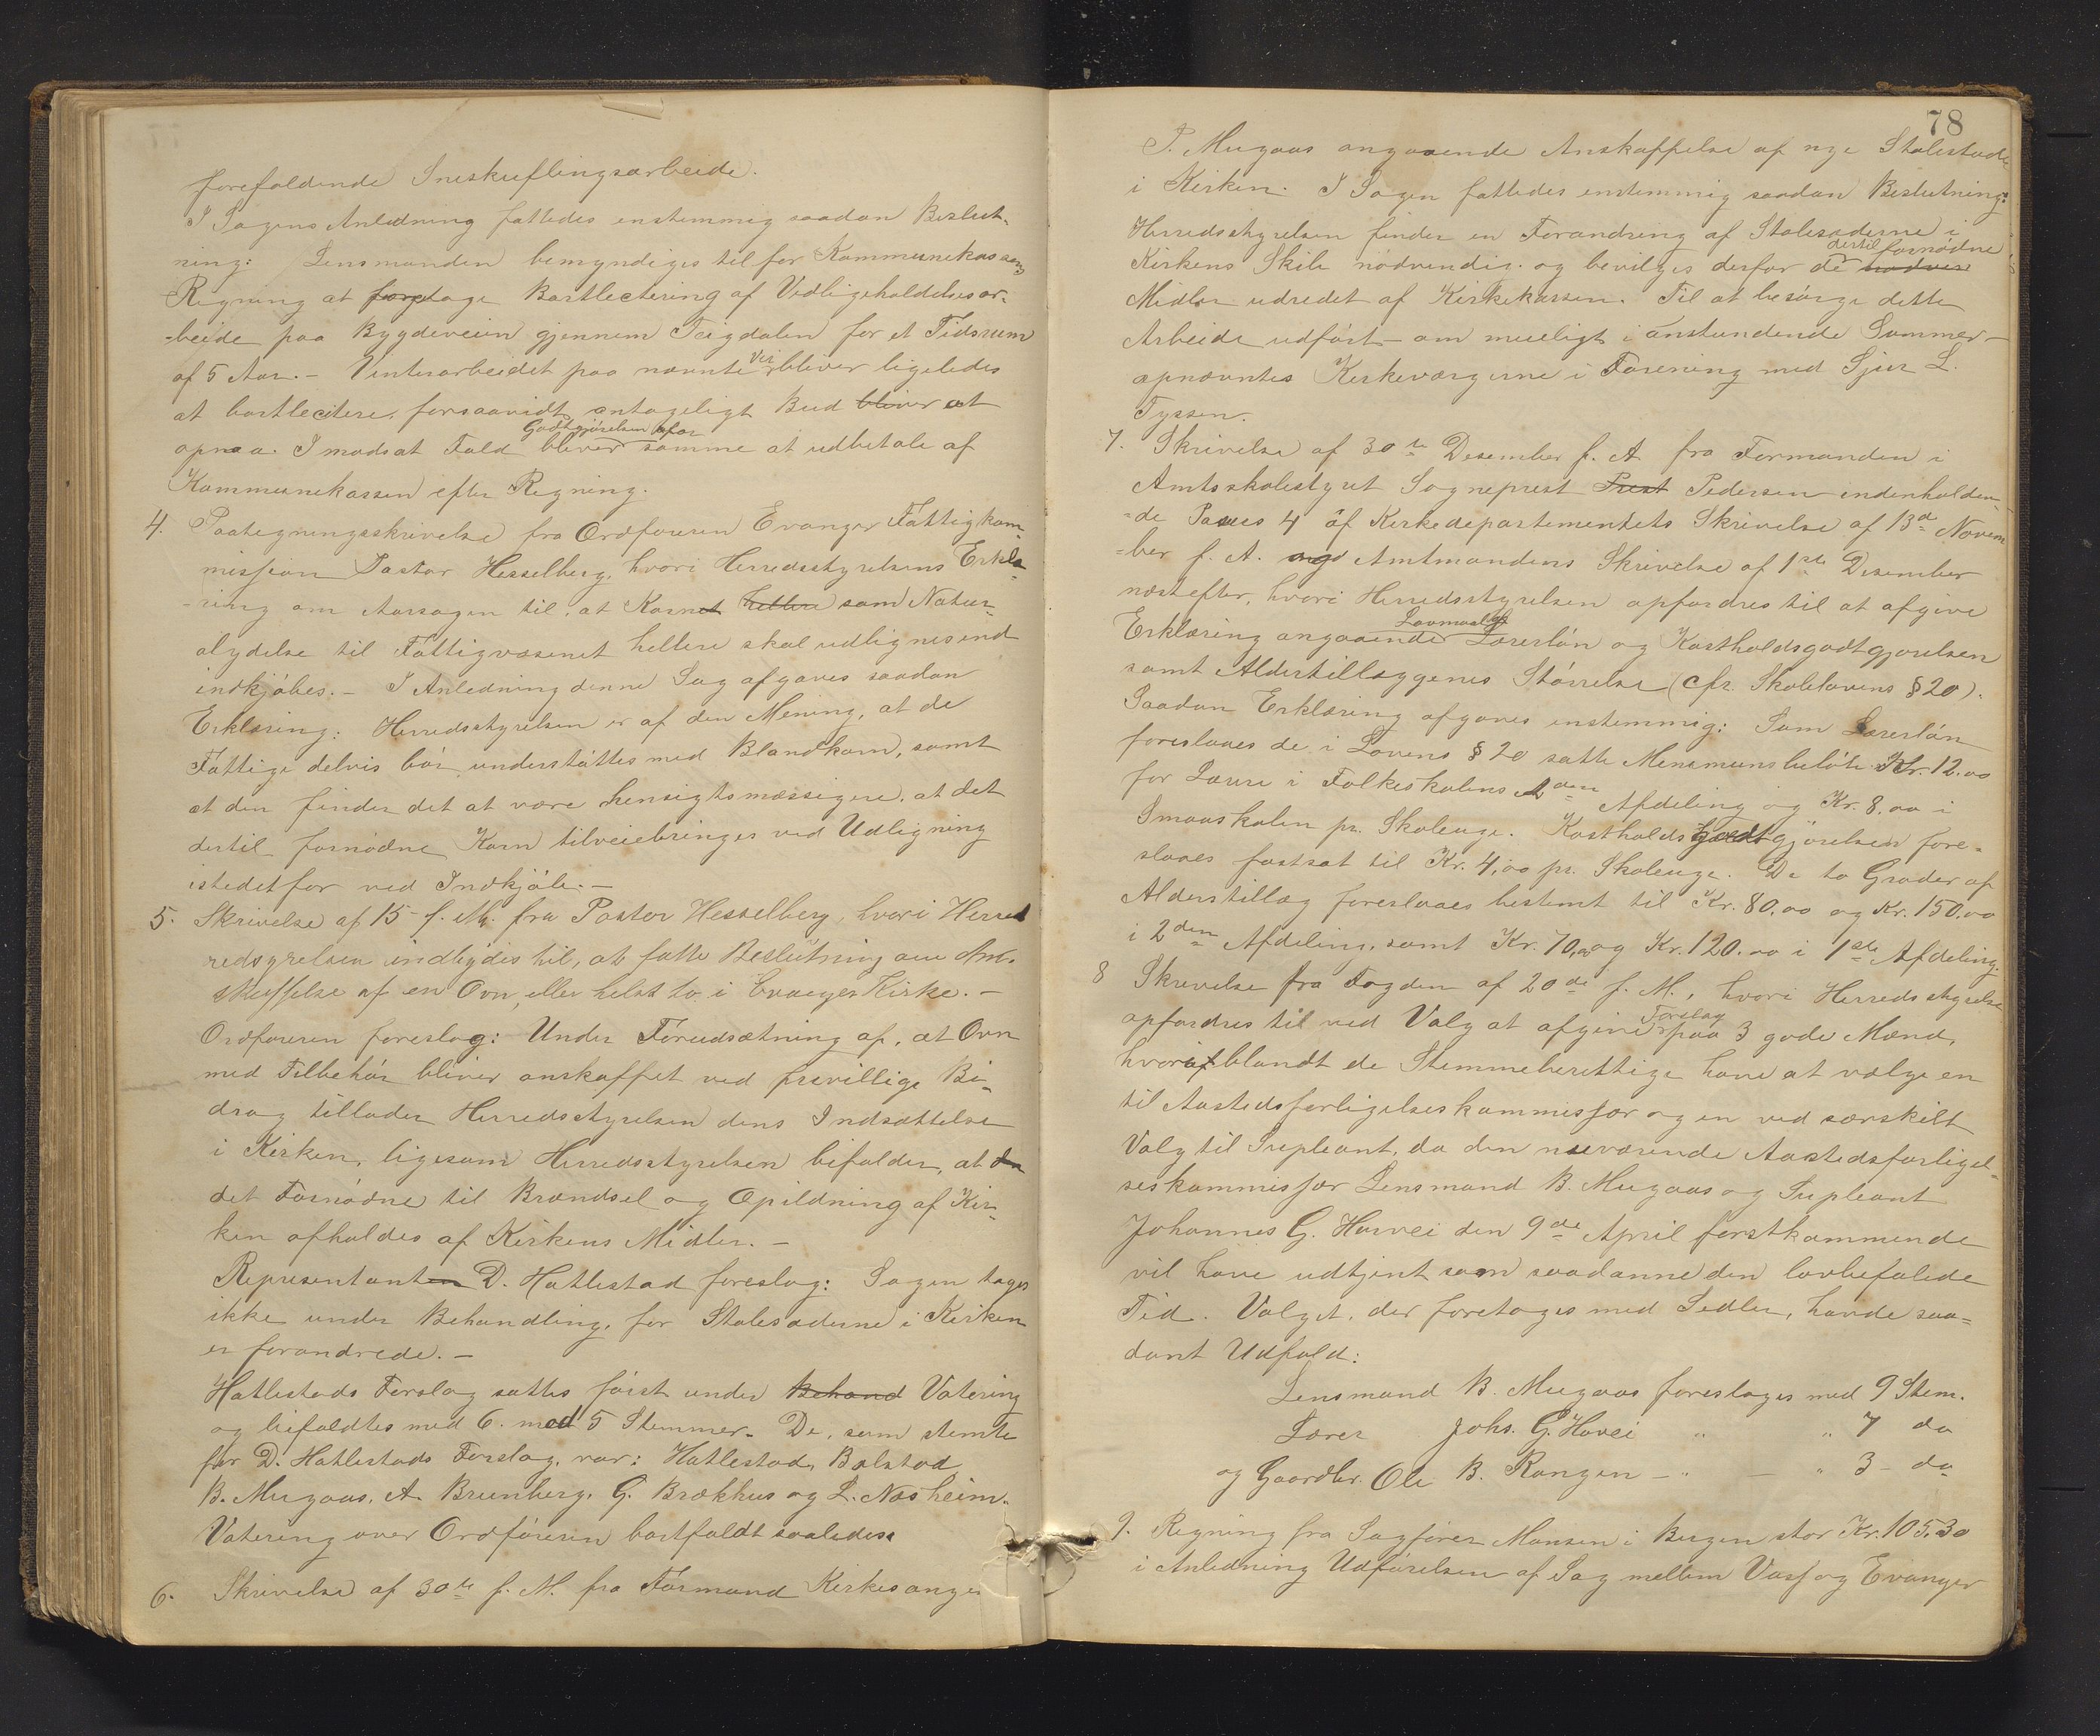 forefaldende Sneskuflingsarbeide.
I Sagens Anledning fattedes enstemmig saadan Beslut-
ning: Lensmanden bemyndiges til for Kommunekassens
Regning at foretage Bortlicitering af Vedligeholdelsesar-
-beide paa Bygdeveien gjennem Teigdalen for et Tidsrum
af 5 Aar. - Vinterarbeidet paa nævnte Vei bliver ligeledes
at bortlicitere, forsaavidt antageligt Bud bliver at
opnaa. I modsat Fald bliver Godtgjörelsen for samme at udbetale af
Kommunekassen efter Regning.
4. Paategningsskrivelse fra Ordföreren Evanger Fattigkom-
mission Pastor Hesselberg, hvori Herredsstyrelsens Erklæ-
-ring om Aarsagen til, at Kornet hellere som Natur-
alydelse til Fattigvæsenet hellere skal udlignes end
indkjöbes. - I Anledning denne Sag afgaves saadan
Erklæring: Herredsstyrelsen er af den Mening, at de
Fattige delvis bör understöttes med Blandkorn, samt
at den finder det at være hensigtsmæssigere, at det
dertil fornödne Korn tilveiebringes ved Udligning
istedetfor ved Indkjöb. -
5. Skrivelse af 15 f. M. fra Pastor Hesselberg, hvori Herred
redsyrelsen indbydes til, at fatte Beslutning om An-
skaffelse af en Ovn, eller helst to, i Evanger Kirke. -
Ordföreren foreslog: Under Forudsætning af, at Ovn
med Tilbehör bliver anskaffet ved frivillige Bi-
drag tillader Herredsstyrelsen dens Indsættelse
i Kirken, ligesom Herredsstyrelsen bifalder, at
det Fornödne til Brændsel og Opildning af Kir-
ken afholdes af Kirkens Midler. -
Representanten D. Hatlestad foreslog: Sagen tages
ikke under Behandling, för Stolesæderne i Kirken
er forandrede. -
Hatlestads Forslag sattes först under Behand Votering
og bifaldtes med 6. mod 5 Stemmer. De, som stemte
for D. Hatlestads Forslag, var: Hatlestad, Bolstad
B. Mugaas, A. Brunberg, G. Brækhus og L. Næsheim.
Votering over Ordförerens bortfaldt saaledes.
6. Skrivelse af 30te f. M. fra Formand Kirkesanger
78
P. Mugaas angaaende Anskaffelse af nye Stolestade
i Kirken. I Sagen fattedes enstemmig saadan Beslutning:
Herredsstyrelsen finder en Forandring af Stolesæderne i
Kirkens Skib nödvendig, og bevilges derfor de dertil fornödne nödven
Midler udredet af Kirkekassen. Til at besörge dette
Arbeide udfört - om mueligt i anstundende Sommer -
opnævntes Kirkeværgerne i Forening med Sjur L.
Tyssen.
7. Skrivelse af 30te Desember f. A. fra Formanden i
Amtsskolestyret Sogneprest Prest Pedersen indenholden-
-de Passus 4 af Kirkedepartementets Skrivelse af 13de Novem
-ber f. A. og Amtmandens Skrivelse af 1ste Desember
næstefter, hvori Herredsstyrelsen opfordres til at afgive
Erklæring angaaende Lovmæssige Lærerlön og Kostholdsgodtgjörelsen
samt Alderstillæggenes Störrelse (cfr. Skolelovens § 20).
Saadan Erklæring afgaves enstemmig: Som Lærerlön
foreslaaes de i Lovens § 20 satte Minimumsbelöb Kr. 12.00
for Lærere i Folkeskolens 2den Afdeling og Kr. 8,00 i
Smaaskolen pr. Skoleuge. Kostholdsgodtgjörelsen fore-
slaaes fastsat til Kr. 4,00 pr. Skoleuge. De to Grader af
Alderstillæg foreslaaes bestemt til Kr. 80,00 og Kr. 150,00
i 2den Afdeling, samt Kr. 70,00 og Kr. 120.00 i 1ste Afdeling.
8 Skrivelse fra Fogden af 20de f. M., hvori Herredsstyrelse
opfordres til ved Valg at afgive Forslag paa 3 gode Mænd,
hvoriblandt de Stemmeberettige have at vælge en
til Aastedsforligelseskommissær og en ved særskilt
Valg til Supleant, da den nuværende Aastedsforligel-
seskommissær Lensmand B. Mugaas og Supleant
Johannes G. Horvei den 9de April förstkommende
vil have udtjent som saadanne den lovbefalede
Tid. Valget, der foretoges med Sedler, havde saa-
dant Udfald:
Lensmand B. Mugaas foresloges med 9 Stem.
Lærer Johs. G. Horvei " " 7 do
og Gaardbr. Ole B. Rongen - " - " 3 - do
9. Regning fra Sagförer Monsen i Bergen stor Kr. 105,30
i Anledning Udförelsen af Sag mellem Voss og Evanger